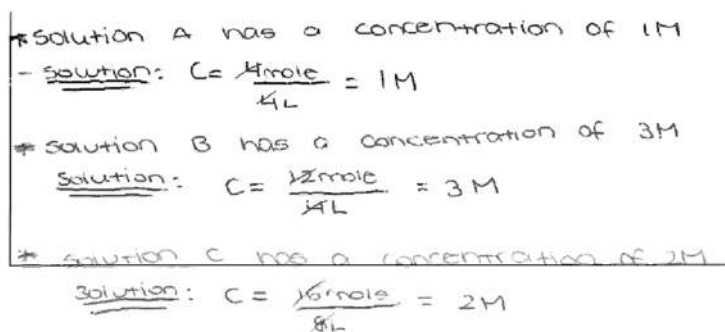 * Solution A has a concentration of 1M
- Solution: C = 4mole / 4L = 1M
* Solution B has a concentration of 3M
Solution: C = 12mole / 4L = 3M
* Solution C has a concentration of 2M
Solution: C = 16mole / 8L = 2M